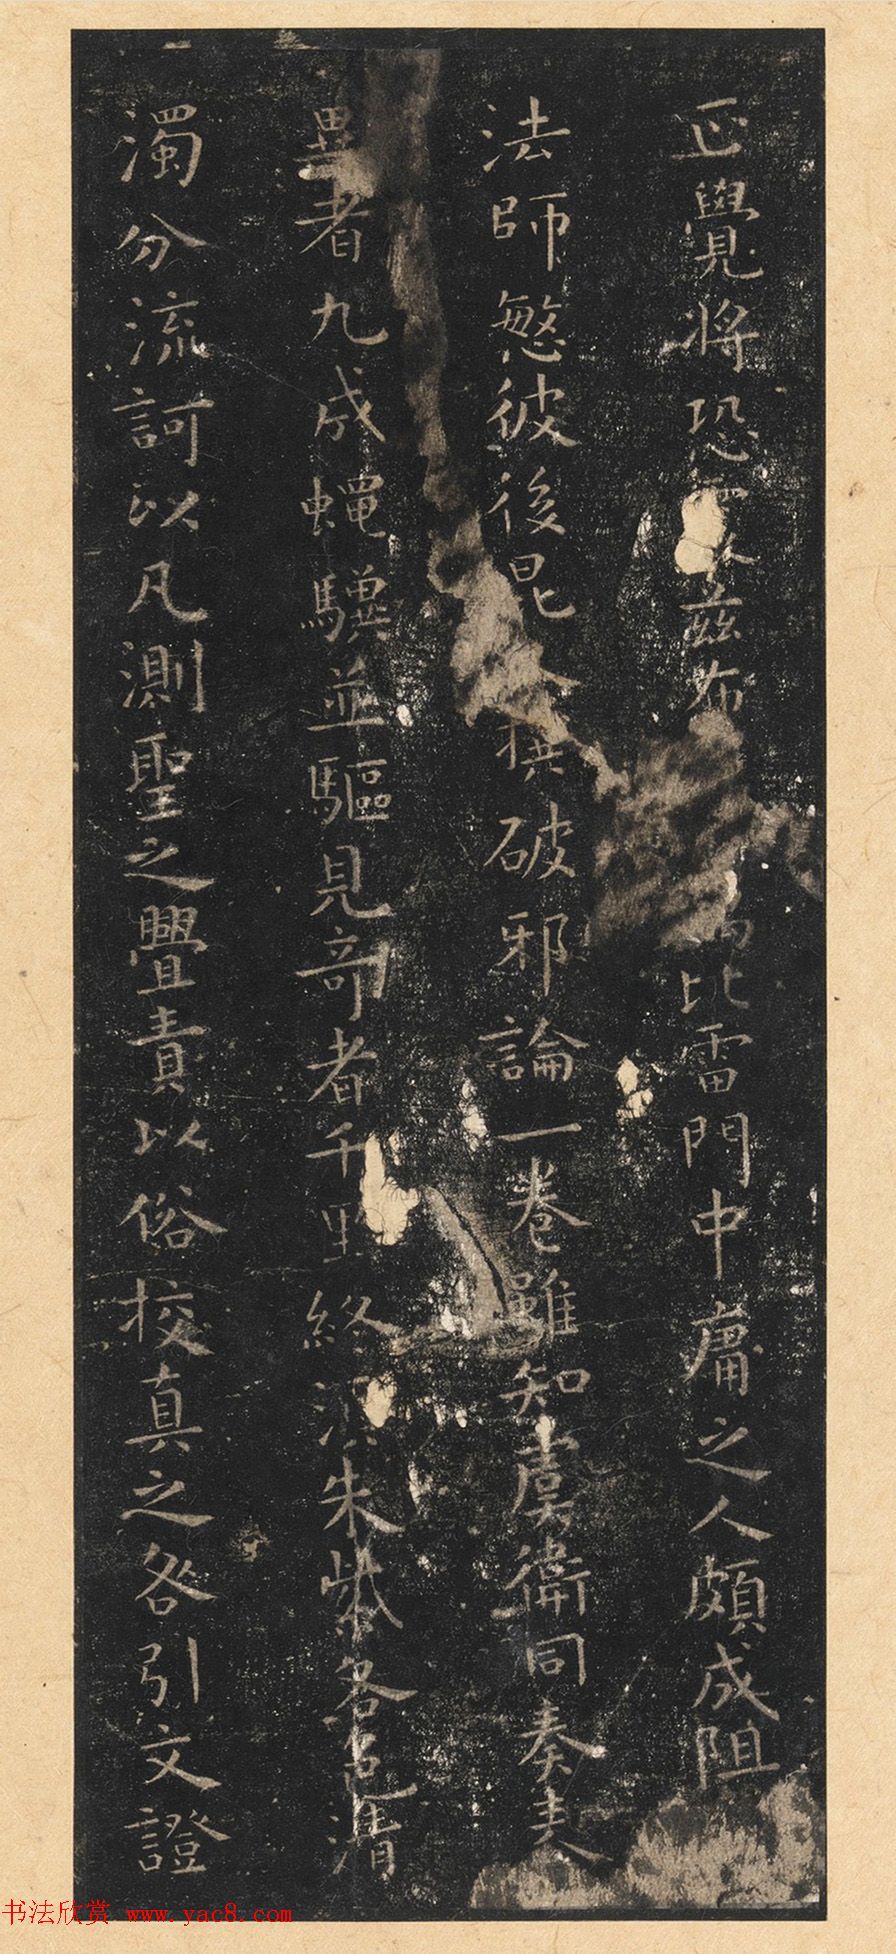 正覺將恐茲布比雷門中庸之人頗成阻
法師慜彼後昆撰破邪論一卷雖知虞衛同奏表
異者九成蠅驥並驅見奇者千里終須朱紫各色清
濁分流訶以凡測聖之舋責以俗校真之咎引文證
书法欣赏 www.yac8.com